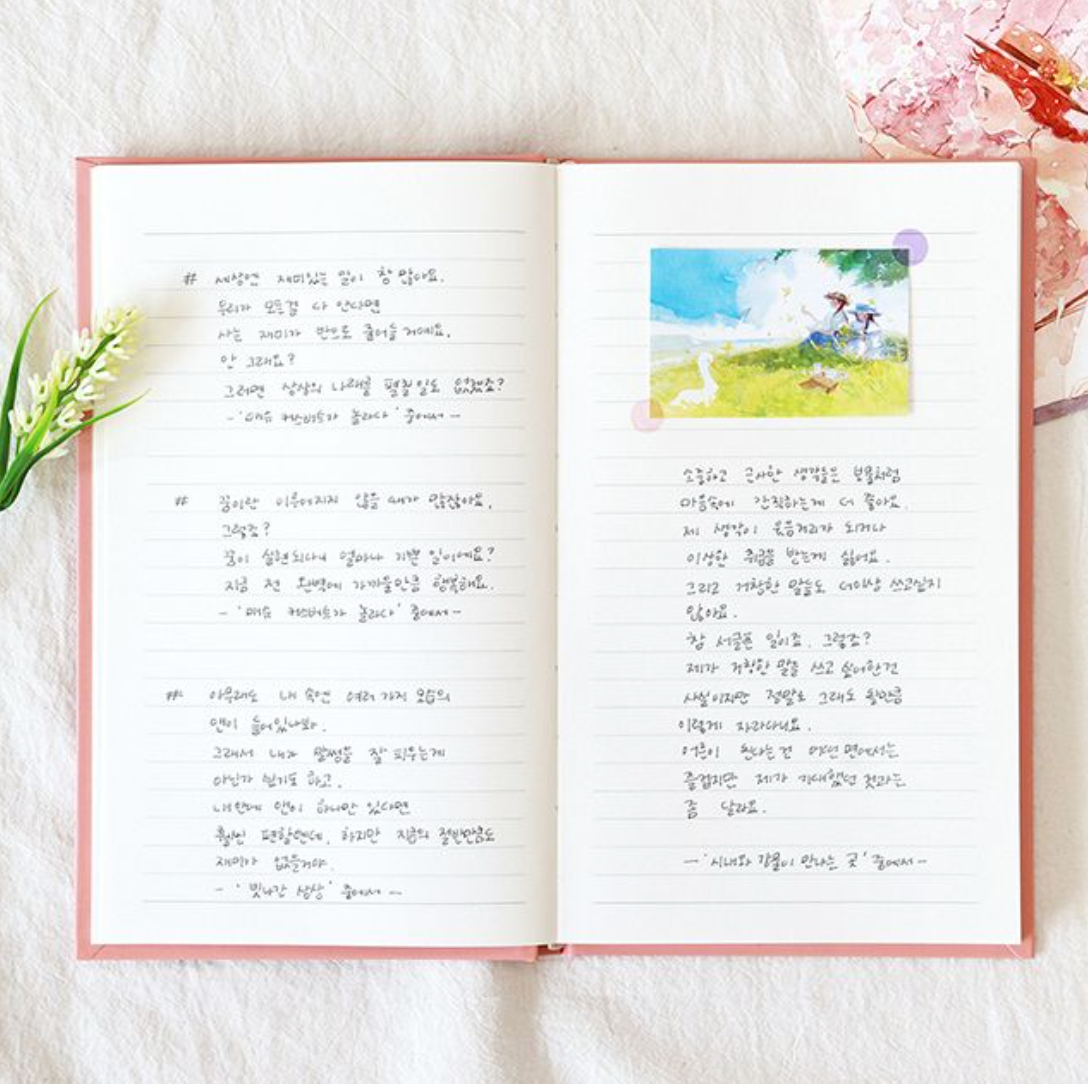 # 세상엔 재미있는 일이 참 많아요.
우리가 모든걸 다 안다면
사는 재미가 반으로 줄어들거예요.
안 그래요?
그러면 상상의 나래를 펼칠일도 없겠죠?
- '매슈 커스버트가 놀라다' 중에서 -
# 꿈이란 이루어지지 않을 때가 많잖아요,
그렇죠?
꿈이 실현되다니 얼마나 기쁜 일이에요?
지금 전 완벽에 가까울만큼 행복해요.
- '매슈 커스버트가 놀라다' 중에서 -
# 아무래도 내 속엔 여러가지 모습의
앤이 들어있나봐.
그래서 내가 말썽을 잘 피우는게
아닌가 싶기도 하고.
내안에 앤이 하나만 있다면
훨씬 편할텐데, 하지만 지금의 절반만큼도
재미가 없을거야.
- '빗나간 상상' 중에서 -
소중하고 근사한 생각들은 보물처럼
마음속에 간직하는게 더 좋아요.
제 생각이 웃음거리가 되거나
이상한 취급을 받는게 싫어요.
그리고 거창한 말들도 더이상 쓰고싶지
않아요.
참 서글픈 일이죠, 그렇죠?
제가 거창한 말을 쓰고 싶어한건
사실이지만 정말로 그래도 될만큼
이렇게 자라다니요.
어른이 된다는건 어떤 면에서는
즐겁지만 제가 기대했던 것과는
좀 달라요.
- '시내와 강물이 만나는 곳' 중에서 -